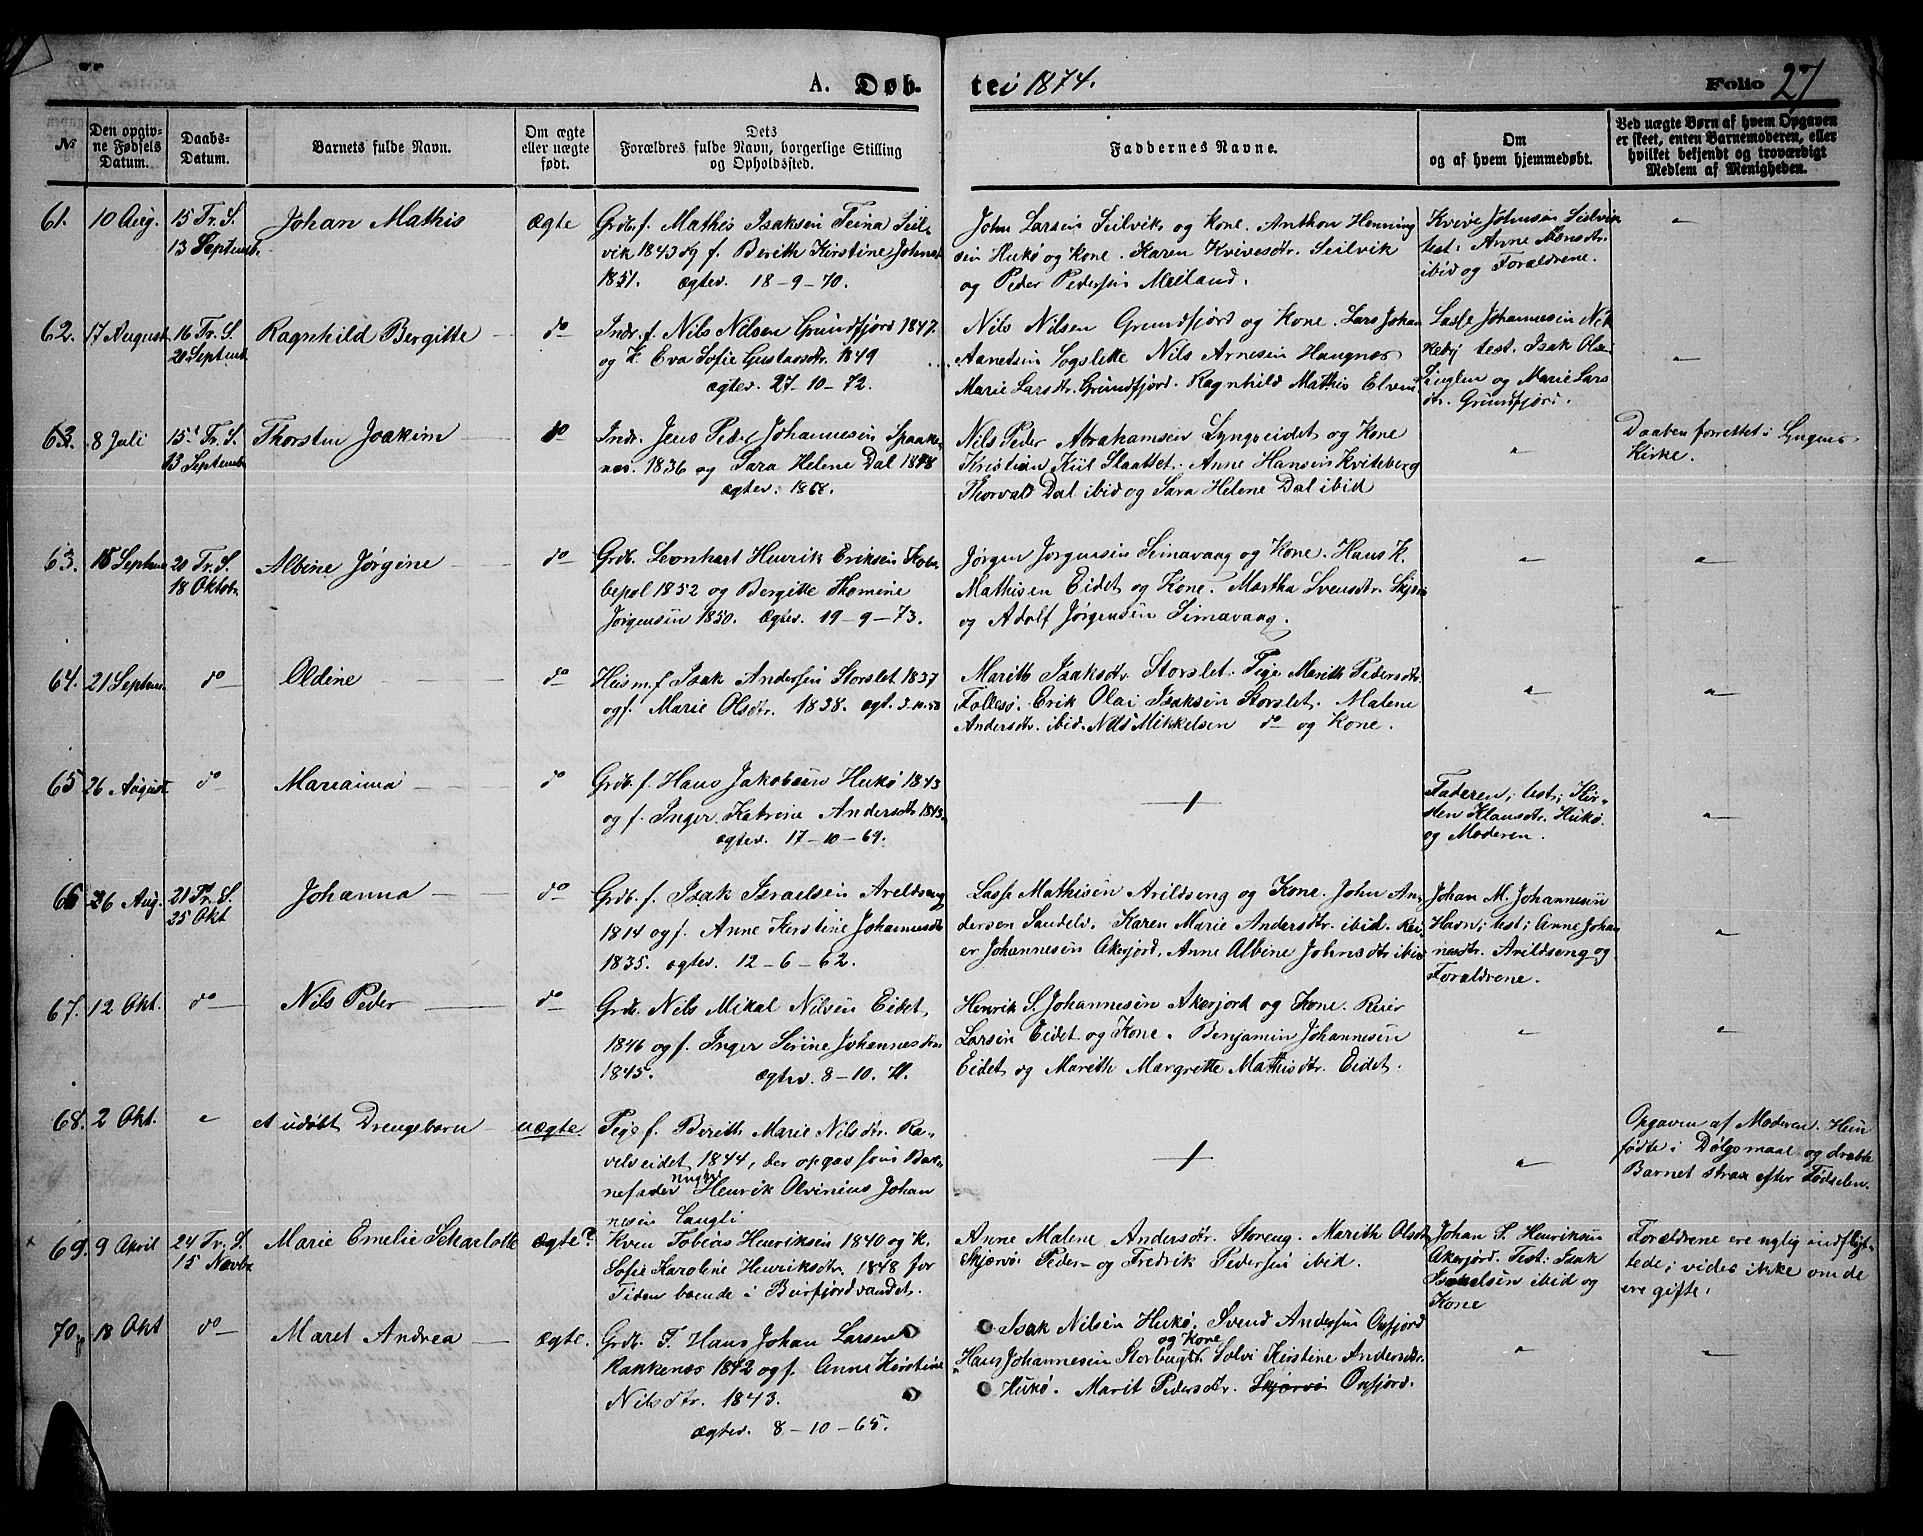 A. Døb-
te i 1874.
Folio 27
№
Den opgiv-
ne Fødsels
Datum.
Daabs-
Datum.
Barnets fulde Navn.
Om ægte
eller uægte
født.
Dets
Forældres fulde Navn, borgerlige Stilling
og Opholdssted.
Faddernes Navne.
Om
og af hvem hjemmedøbt.
Ved uægte Børn af hvem Opgaven
er skeet, enten Barnemoderen, eller
hvilket bekjendt og troværdigt
Medlem af Menigheden.
61. 10 Aug. 15 Tr. S.
13 Septemb. Johan Mathis ægte
Grdb. f. Mathis Isaksen Teina Seil-
vik 1843 og f. Berith Kirstine Johnsd.
1851. ægtev. 18-9-70.
John Larsen Seilvik og Kone. Anthon Henning
sen Hukø og Kone. Karen Kvivesdtr. Seilvik
og Peder Pedersen Meiland.
Kvive Johnsen Seilvik
test. Anne Monsdtr.
ibid og Forældrene.
"
62. 17 August 16 Tr. S.
20 Septemb. Ragnhild Bergitte do
Indr. f. Nils Nilsen Grundfjord 1847
og K. Eva Sofie Gustavsdtr. 1849
ægtev. 27-10-72.
Nils Nilsen Grundfjord og Kone. Lars Johan
Aanetsen Sogslette Nils Arnesen Haugnæs
Marie Larsdtr. Grundfjord. Ragnhild Mathis Elven
Lasse Johannesen Nik
keby test. Isak Olsen
og Marie Lars
dtr. Grundfjord.
"
63. 8 Juli 15 Tr. S.
13 Septemb Thorsten Joakim do
Indr. Jens Peder Johannesen Spaake-
næs. 1836 og Sara Helene Dal 1848
ægtev. 1868.
Nils Peder Abrahamsen Lyngseidet og Kone
Kristian Kiil Slaattet. Anne Hansen Kviteberg
Thorvald Dal ibid og Sara Helene Dal ibid
"
Daaben forrettet i Lyngens
Kirke.
63. 18 Septem 20 Tr. S.
18 Oktobr. Albine Jørgine do
Grdb. Leonhart Henrik Eriksen Kob-
bepol 1852 og Bergitte Thomine
Jørgensen 1850. ægtev. 19-9-73.
Jørgen Jørgensen Simavaag og Kone. Hans K.
Mathisen Eidet og Kone. Martha Svensdtr. Skjærv
og Adolf Jørgensen Simavaag.
"
"
64. 21 Septem. do Oldine do
Husm. f. Isak Andersen Storslet 1837
og f. Marie Olsdtr. 1838. ægt. 3-10-58
Marith Isaksdtr. Storslet. Pige Marith Pedersdtr.
Follesø. Erik Olai Isaksen Storslet. Malene
Andersdtr. ibid. Nils Mikkelsen do og Kone.
"
"
65 26 August do Marianna do
Grdb. f. Hans Jakobsen Hukø 1843
og f. Inger Katrine Andersdtr 1843.
ægtev. 17-10-69.
Faderen; test; Kir-
sten Klausdtr. Hukø.
og Moderen.
"
66 26 Aug. 21 Tr. S.
25 Okt Johanna do
Grdb. f. Isak Israelsen Arildseng
1814 og f. Anne Kerstine Johannesdtr
1835. ægtev. 12-6-62.
Lasse Mathisen Arildseng og Kone. John An-
dersen Sandelv. Karen Marie Andersdtr. ibid. Rei-
er Johannesen Akerjord. Anne Albine Johnsdtr ibid
Johan M. Johannesen
Havn; test; Anne Johan
nesdtr. Arildseng og
Forældrene.
"
67. 12 Okt. do Nils Peder do
Grdb. Nils Mikal Nilsen Eidet
1846 og f. Inger Serine Johannesdtr
1845. ægtev. 8-10-71.
Henrik S. Johannesen Akerjord og Kone. Reier
Larsen Eidet og Kone. Benjamin Johannesen
Eidet og Marith Margrette Mathisdtr. Eidet.
"
"
68. 2 Okt. " et udøbt Drengebarn uægte.
Pige f. Berith Marie Nilsdtr. Ra-
velseidet 1844, der opgav som Bar-
nefader Ungkr Henrik Olvinius Johan
nesen Laugli
"
Opgaven af Moderen. Hun
fødte i Dølgsmaal og dræbte
Barnet strax efter Fødselen.
69. 9 April 24 Tr. S.
15 Novbr Marie Emelie Scharlotte ægte?
Kven Tobias Henriksen 1840 og K.
Sofie Karoline Henriksdtr. 1848 for
Tiden boende i Burfjordvandet.
Anne Malene Andersdtr. Storeng. Marith Olsdtr
Skjærvø. Peder- og Fredrik Pedersen ibid.
Johan S. Henriksen
Akerjord. Test: Isak
Isakelsen ibid og
Kone
Forældrene ere nylig indflyt-
tede; vides ikke om de
ere gifte.
70. 18 Okt do Maret Andrea ægte.
Grdb. F. Hans Johan Larsen
Rakkenæs 1842 og f. Anne Kerstine
Nilsdtr. 1843.
ægtev. 8-10-65.
Isak Nilsen Hukø. Svend Andersen Oxfjord
og Kone
Hans Johannesen Storbugt. Solvi Kirstine Andersdtr.
Hukø. Marit Pedersdtr. Skjærvø Oxfjord.
"
"